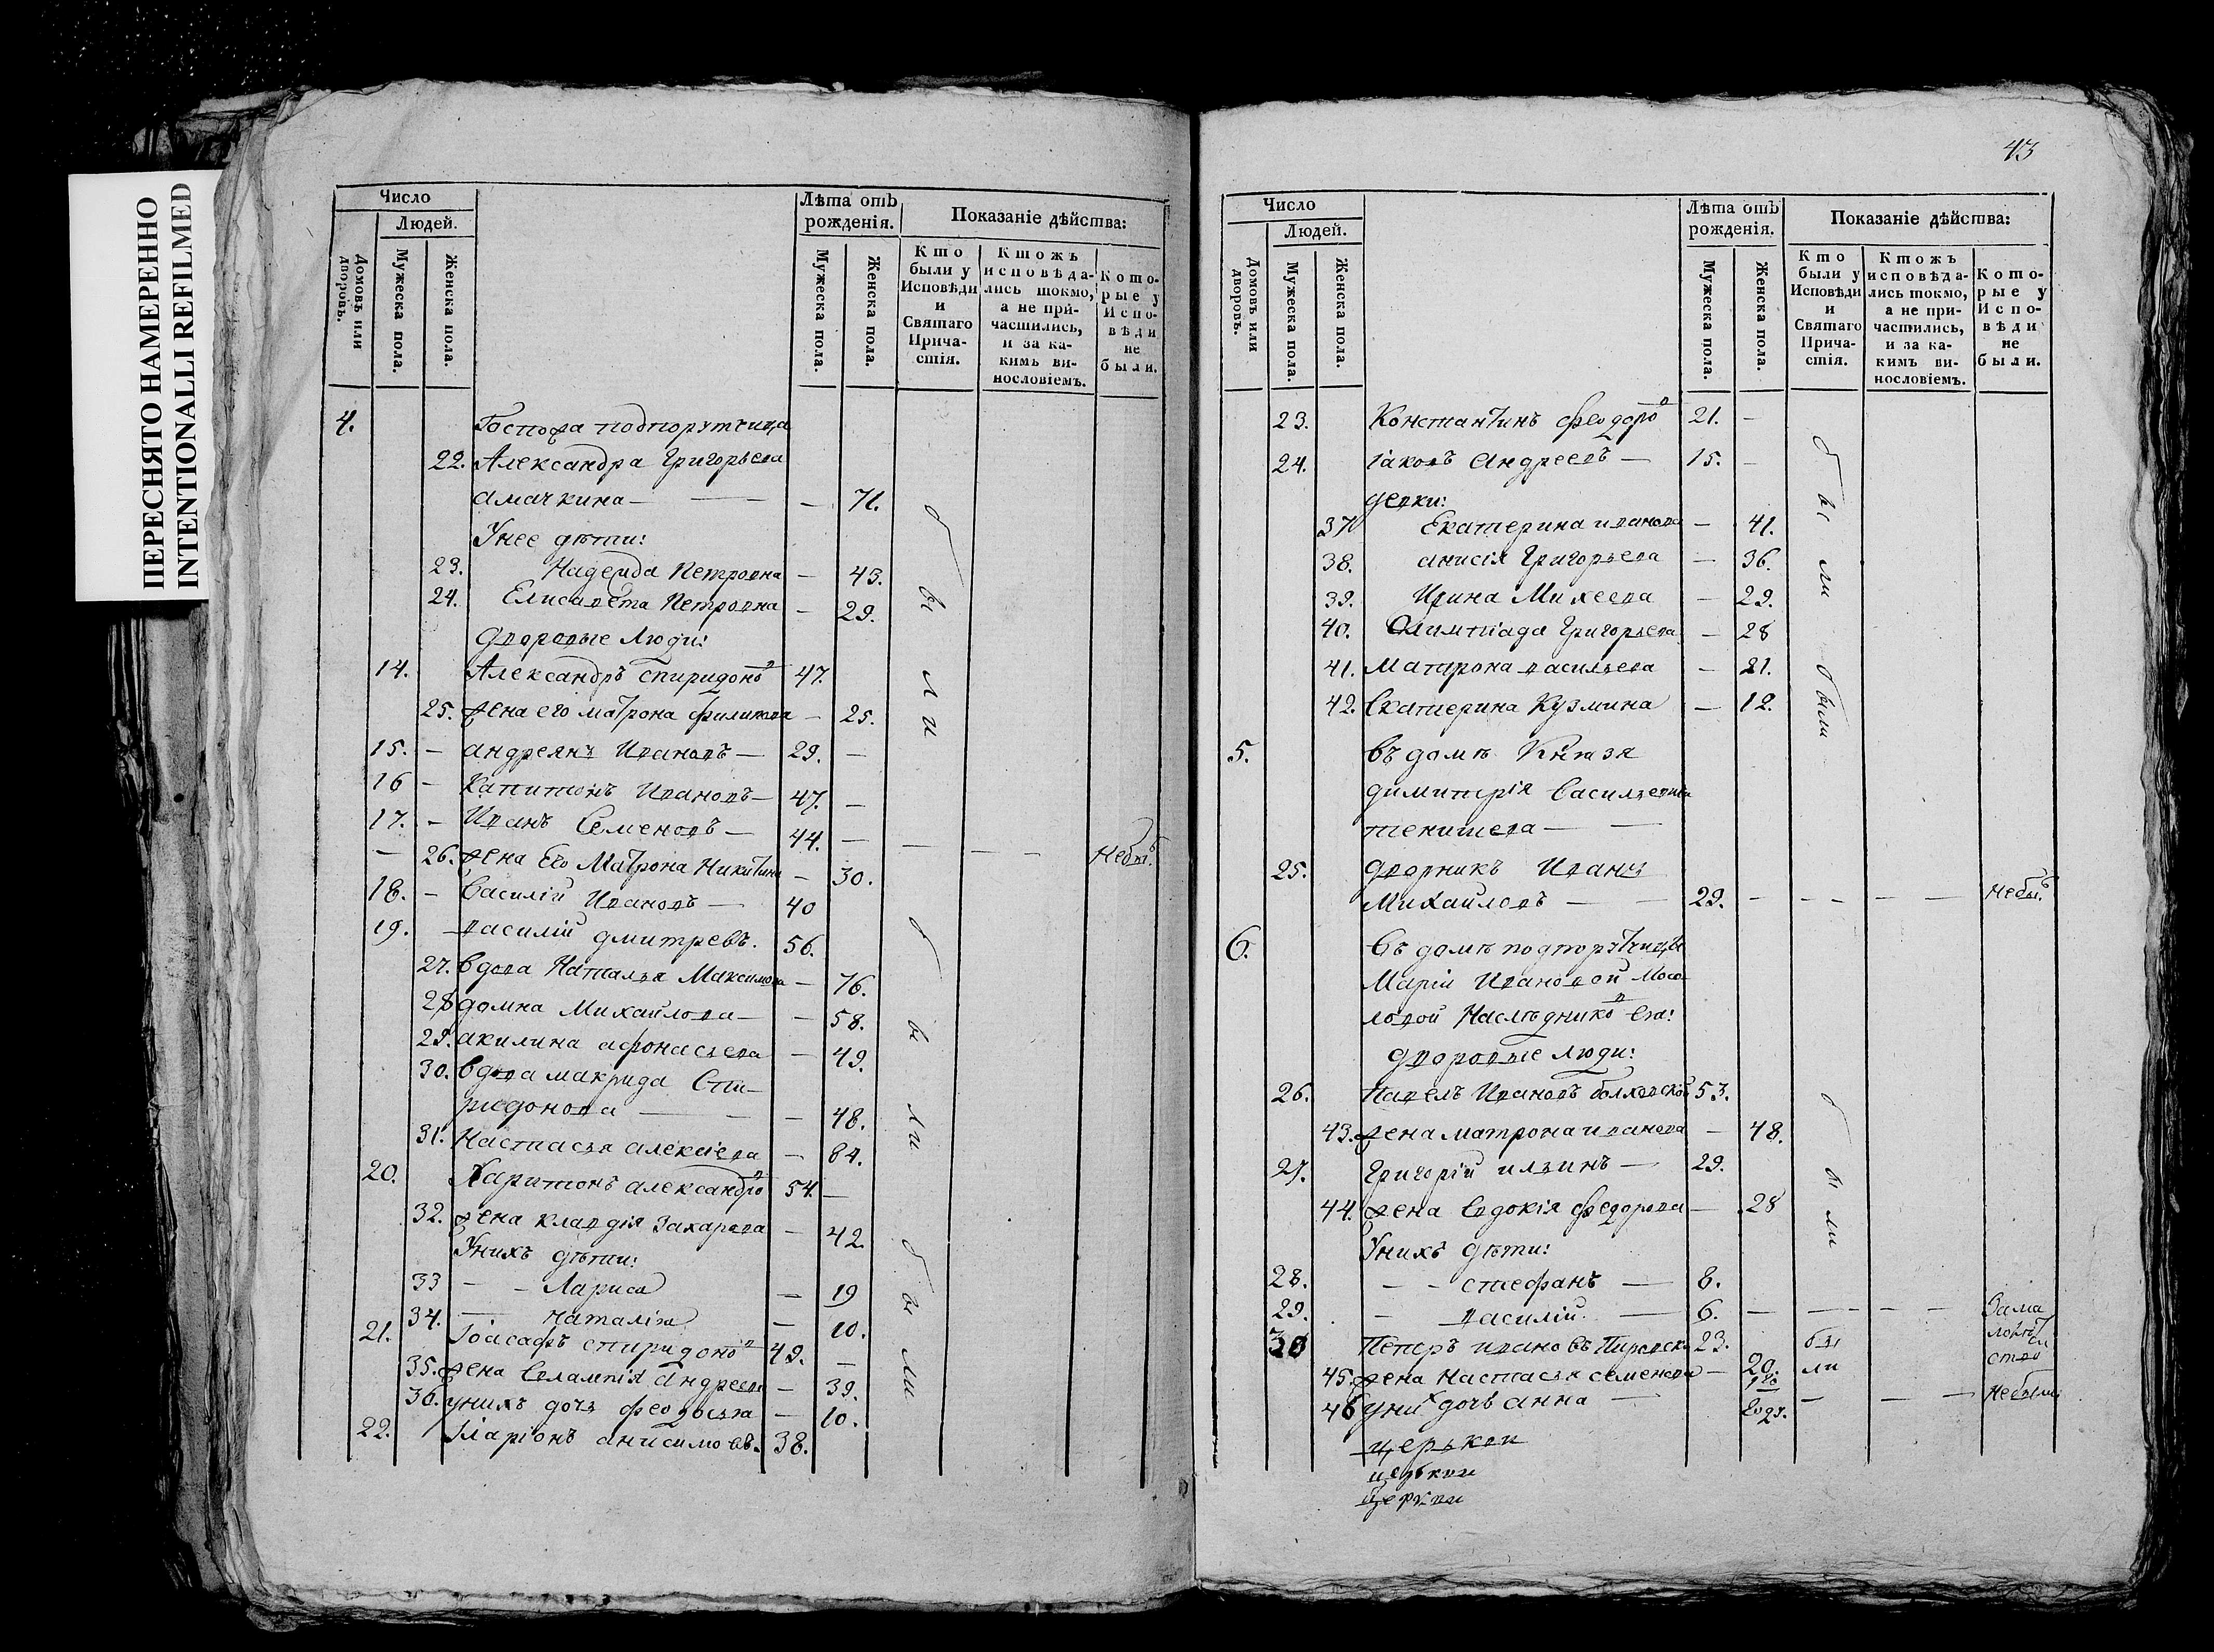 ПЕРЕСНЯТО НАМЕРЕННО
INTENTIONALLI REFILMED
Число
Людей.
Домовъ или дворовъ.
Мужеска пола.
Женска пола.
Лѣта отъ рожденія.
Мужеска пола.
Женска пола.
Показаніе дѣйства:
Кто были у Исповѣди и Святаго Прича-стія.
Ктожъ исповѣда-лись токмо, а не при-частились, и за ка-кимъ ви-нословіемъ.
Кото-рые у Испо-вѣди не были.
4. Госпожа подпорутчица
22. Александра Григорьева
Амачкина — — — 71.
Унее дѣти:
23. Надежда Петровна — 43.
24. Елисавета Петровна — 29.
Дворовые люди:
14. Александръ Спиридоно в 47.
25. жена его матрона филипова — 25.
были
15. — андреянъ Ивановъ — 29. —
16 — Капитонъ Ивановъ — 47. —
17. — Иванъ Семеновъ — 44. —
— 26. жена Его Матрона Никитина — 30. — — — Небыт.
18. — Василій Ивановъ — 40
19. василій дмитревъ. 56.
27. вдова Наталья Максимова — 76.
28 домна Михайлова — — 58.
29. акилина афонасьева — 49.
30. вдова макрида Спи-
ридонова — — — 48.
31. Настасья алексіева — 64.
были
20. Харитонъ александро в 54. —
32. жена клавдія Захарова — 42
Унихъ дѣти:
33 — — Лариса — 19
34. — Наталія — 10.
21. Іоасафъ спиридоно в 49. —
35. жена Евлампія Андреева — 39.
36. унихъ дочь феодосья — 10.
22. Иларіонъ анисимовъ. 38.
были
43
Число
Людей.
Домовъ или дворовъ.
Мужеска пола.
Женска пола.
Лѣта отъ рожденія.
Мужеска пола.
Женска пола.
Показаніе дѣйства:
Кто были у Исповѣди и Святаго Прича-стія.
Ктожъ исповѣда-лись токмо, а не при-частились, и за ка-кимъ ви-нословіемъ.
Кото-рые у Испо-вѣди не были.
23. Константинъ феодоро в 21. —
24. Іаковъ Андреевъ — 15. —
девки:
37 Екатерина иванова — 41.
38. анисія Григорьева — 36.
39. Ирина Михеева — 29.
40. Олимпіада Григорьева — 28
41. Матрона васильева — 21.
42. Екатерина Кузмина — 12.
были были
5. въ домѣ Князя
димитрія Васильевича
тенишева — —
25. дворникъ Иванъ
Михайловъ — — 29. — — — — — Небы.
6. въ домѣ подпорутчицы
Маріи Ивановой Мосо
ловой Наслѣднико в Ега:
дворовые люди:
26. Павелъ Ивановъ болховской 53.
43. жена матрона иванова — 48.
27. Григорій ильинъ — 29.
44. жена Евдокія федорова — 28
Унихъ дѣти:
были
28. — — стефанъ — 8.
29. — василій — 6. — — — — — Зама
лолѣт
ство
30 Петръ ивановъ 23. бы
45. жена Настасья семенова — 20. ли
46 уни х дочь анна — — — Небыли
церькви
церькви
церкви